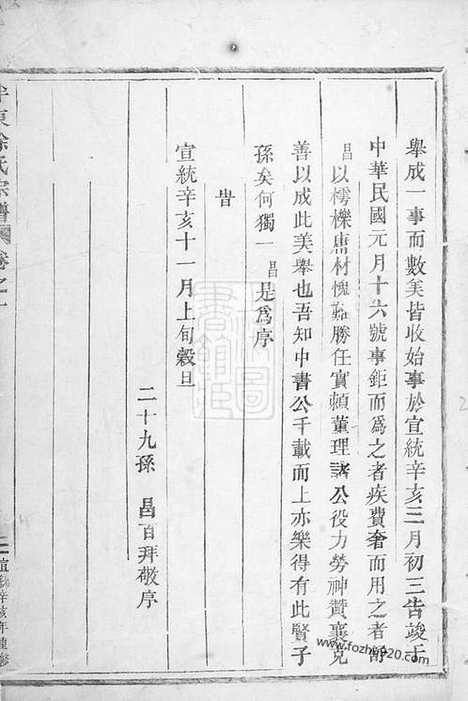 舉成一事而數美皆收始事於宣統辛亥三月初三告竣于
中華民國元月十六號事鉅而為之者疾費奢而用之者
昌以樗櫟庸材愧難勝任實賴董理諸公役力勞神贊襄克
善以成此美舉也吾知中書公千載而上亦樂得有此賢子
孫矣何獨一昌是為序
旹
宣統辛亥十一月上旬穀旦
二十九孫 昌百拜敬序
東徐氏宗譜 卷之一
辛亥年重修
www.fozhu920.com